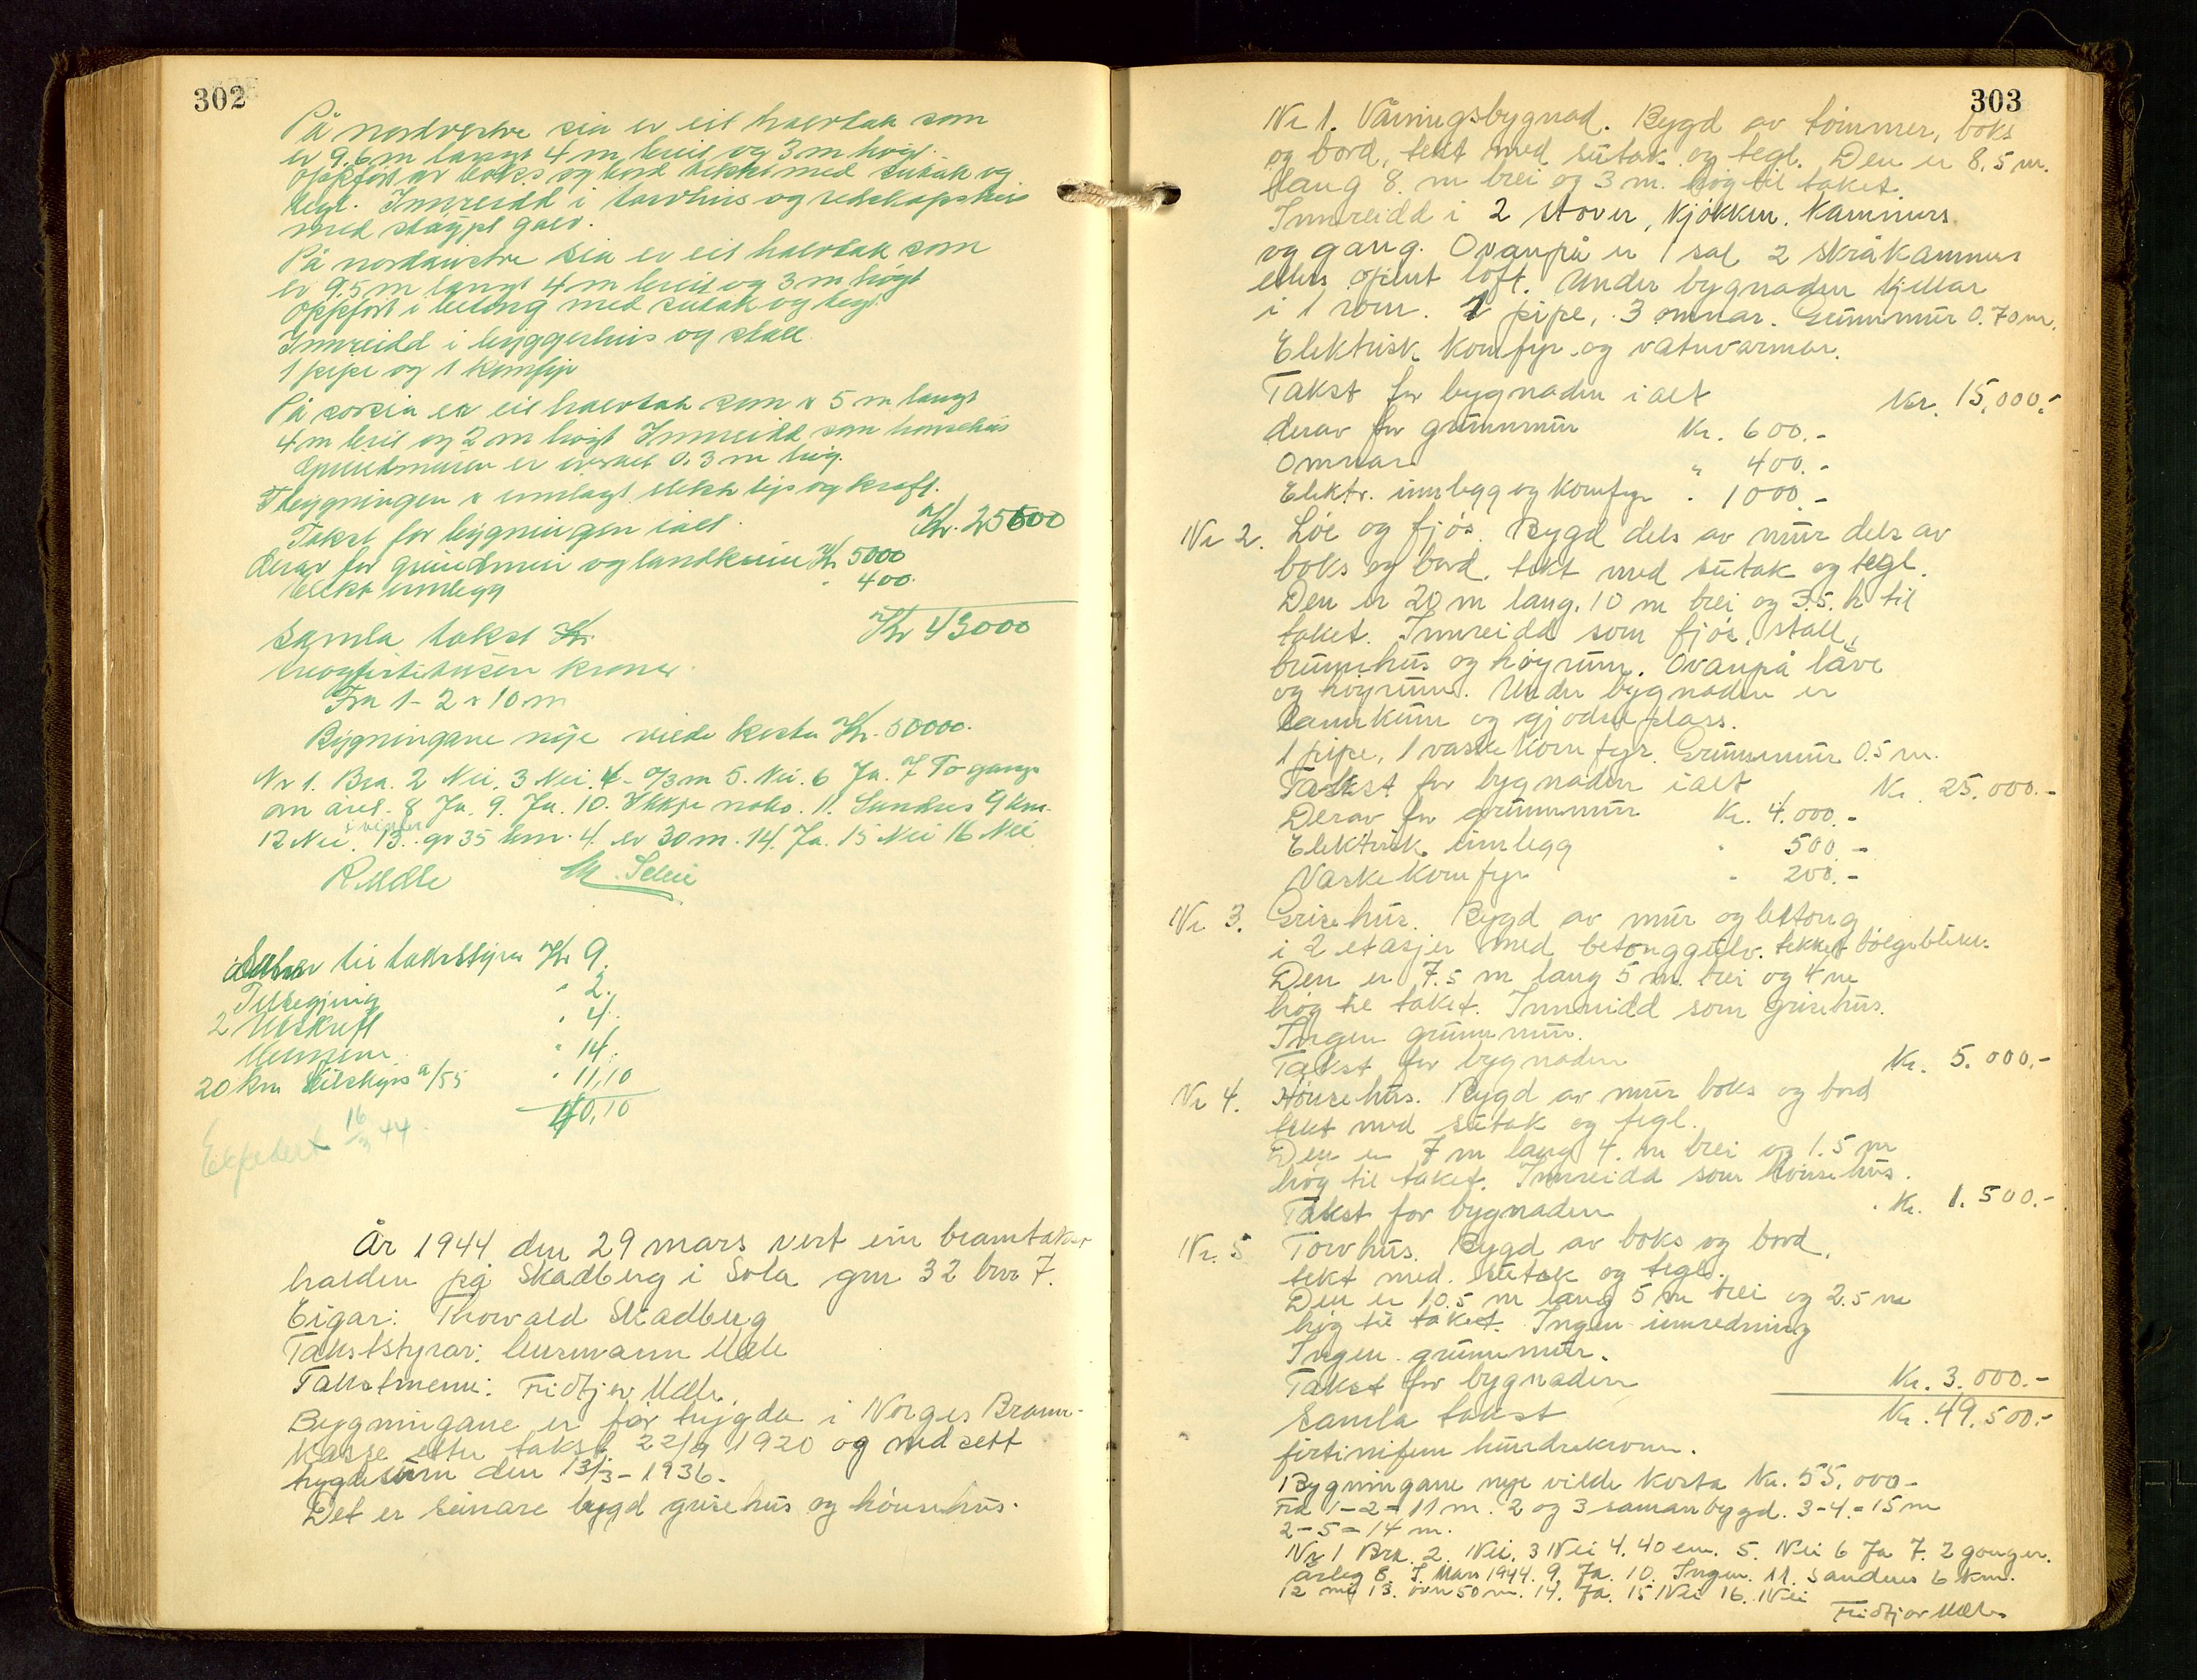 302
På nordvestre sia er eit halvtak som
er 9.6 m langt 4 m breit og 3 m høgt.
Oppført av boks og bord tekt med sutak og
tegl. Innreidd i torvhus og redskapshus
med støypt golv.
På nordaustre sia er eit halvtak som
er 9.5 m langt 4 m breit og 3 m høgt
Oppført i betong med sutak og tegl.
Innreidd i bryggerhus og stall
1 pipe og 1 komfyr
På sørsia er eit halvtak som er 5 m langt
4 m breit og 2 m høgt Innreidd som hønsehus
Grunnmuren er 0.3 m høg.
I bygningen er innlagt elektr lys og kraft.
Takst for bygningen ialt Kr. 25600
Derav for grunnmur og landkum Kr 5000
Elektr innlegg " 400.
Samla takst Kr. Kr 43000
kroner
Fra 1-2 er 10 m
Bygningane nye vilde kosta Kr. 50000.
Nr 1. Bra. 2 Nei. 3 Nei. 4 - 0/3 m 5. Nei. 6 Ja. 7 To gange
om året. 8 Ja. 9. Ja. 10. Ikkje noko. 11. Sandnes 9 km.
12 Nei. 13. 35 km. 4. er 30 m. 14. Ja. 15 Nei 16 Nei
R Melle M. Seleie
til takststyrar Kr 9.
Tilseiing " 2.
2 Utskrift " 4.
" 14.
20 km bilskyss a/55 " 11,10
40,10
Expedert 16/3 44.
År 1944 den 29 mars vert ein branntakst
halden på Skadberg i Sola gnr 32 bnr 7.
Eigar: Thorvald Skadberg
Takststyrar: lensmann Mæle
Takstmenn: Fridtjov Mæle.
Bygningane er før trygda i Norges Brann-
kasse etter takst 22/9 1920 og nedsett
trygdesum den 13/3 - 1936.
Det er seinare bygd grisehus og hønsehus.
303
Nr 1. Våningsbygnad. Bygd av tømmer, boks
og bord, tekt med sutak og tegl. Den er 8.5 m.
lang 8 m brei og 3 m. høg til taket.
Innreidd i 2 stover, kjøkken, kammers
og gang. Ovanpå er 1 sal 2 skråkammer
ellers opent loft. Under bygnaden kjellar
i 1 rom. 1 pipe, 3 omnar. Grunnmur 0.70 m.
Elektrisk komfyr og vatnvarmar.
Takst for bygnaden i alt Kr. 15,000.-
derav for grunnmur Kr. 600.-
Omnar " 400.-
Elektr. innlegg og komfyr " 1000.-
Nr 2. Løe og fjøs. Bygd dels av mur dels av
boks og bord. tekt med sutak og tegl.
Den er 20 m lang. 10 m brei og 3.5. h til
taket. Innreidd som fjøs, stall,
brunnhus og høyrum. Ovanpå låve
og høyrum. Under bygnaden er
lannkum og gjødselplass.
1 pipe, 1 vaskekomfyr. Grunnmur 0.5 m.
Takst for bygnaden i alt Kr. 25.000.-
Derav for grunnmur Kr. 4.000.-
Elektrisk innlegg " 500.-
Vaskekomfyr " 200.-
Nr 3. Grisehus. Bygd av mur og betong
i 2 etasjer med betonggolv. tekket bølgeblikk.
Den er 7.5 m lang 5 m. brei og 4 m
høg til taket. Innreidd som grisehus.
Ingen grunnmur.
Takst for bygnaden Kr. 5.000.-
Nr 4. Hønsehus. Bygd av mur boks og bord
tekt med sutak og tegl.
Den er 7 m lang 4. m brei og 1.5 m
høg til taket. Innreidd som hønsehus.
Takst for bygnaden Kr. 1.500.-
Nr. 5 Torvhus. Bygd av boks og bord.
tekt med. sutak og tegl.
Den er 10.5 m lang 5 m brei og 2.5 m
høg til taket. Ingen innredning
Ingen grunnmur.
Takst for bygnaden Kr. 3.000.-
Samla takst Kr. 49.500.-
førtinifem hundrekroner.
Bygningane nye vilde kosta Kr. 55.000-
Fra 1-2 = 11 m. 2 og 3 samanbygd. 3-4. = 15 m
2-5 = 14 m.
Nr 1 Bra. 2. Nei. 3 Nei 4. 40 cm. 5. Nei 6 Ja 7. 2 gonger.
årleg 8. I Mars 1944. 9. Ja. 10. Ingen. 11. Sandnes 6 km.
12 nei 13. over 50 m. 14. Ja. 15 Nei 16. Nei
Fridtjov Mæle